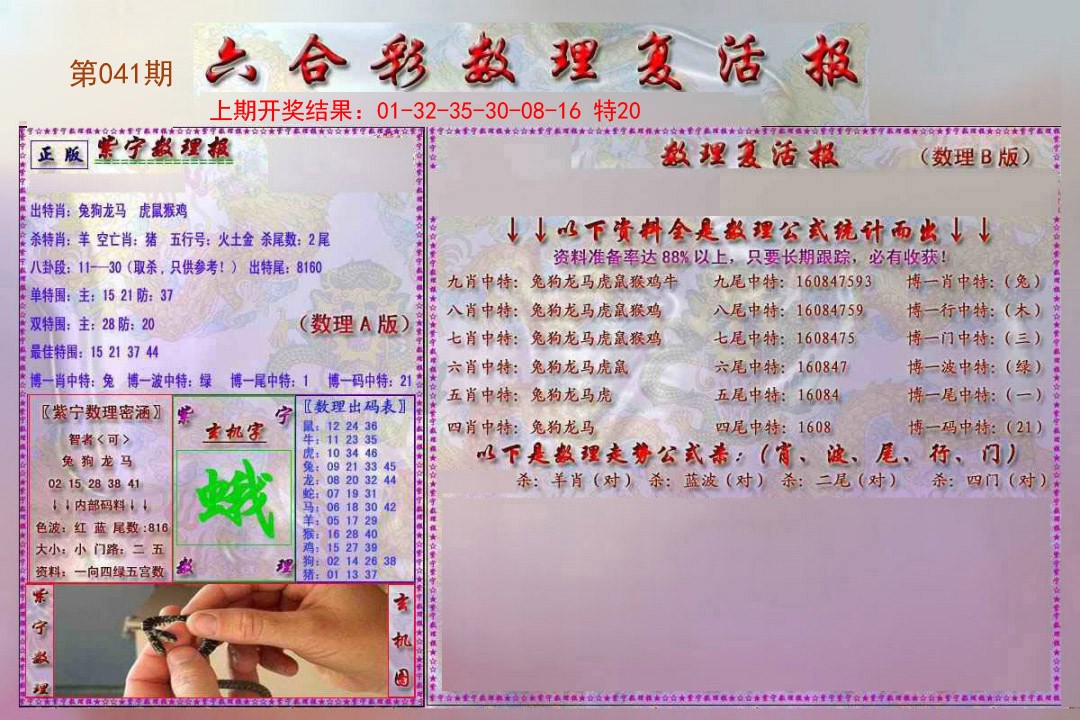 第041期
六合彩数理复活报
上期开奖结果：01-32-35-30-08-16 特20
正版 紫宁数理报
出特肖：兔狗龙马 虎鼠猴鸡
杀特肖：羊 空亡肖：猪 五行号：火土金 杀尾数：2尾
八卦段：11--30（取杀，只供参考！） 出特尾：8160
单特围：主：15 21 防：37
双特围：主：28 防：20
（数理A版）
最佳特围：15 21 37 44
博一肖中特：兔 博一波中特：绿 博一尾中特：1 博一码中特：21
〖紫宁数理密涵〗
智者＜可＞
兔 狗 龙 马
02 15 28 38 41
↓↓内部码料↓↓
色波：红 蓝 尾数：816
大小：小 门路：二 五
资料：一向四绿五宫数
紫宁
玄机字
蛾
数理
〖数理出码表〗
鼠：12 24 36
牛：11 23 35
虎：10 34 46
兔：09 21 33 45
龙：08 20 32 44
蛇：07 19 31
马：06 18 30 42
羊：05 17 29
猴：16 28 40
鸡：15 27 39
狗：02 14 26 38
猪：01 13 37
紫宁数理
玄机图
数理复活报
（数理B版）
↓↓以下资料全是数理公式统计而出↓↓
资料准备率达88%以上，只要长期跟踪，必有收获！
九肖中特：兔狗龙马虎鼠猴鸡牛 九尾中特：160847593 博一肖中特：（兔）
八肖中特：兔狗龙马虎鼠猴鸡 八尾中特：16084759 博一行中特：（木）
七肖中特：兔狗龙马虎鼠猴鸡 七尾中特：1608475 博一门中特：（三）
六肖中特：兔狗龙马虎鼠 六尾中特：160847 博一波中特：（绿）
五肖中特：兔狗龙马虎 五尾中特：16084 博一尾中特：（一）
四肖中特：兔狗龙马 四尾中特：1608 博一码中特：（21）
以下是数理走势公式杀：（肖、波、尾、行、门）
杀：羊肖（对） 杀：蓝波（对） 杀：二尾（对） 杀：四门（对）